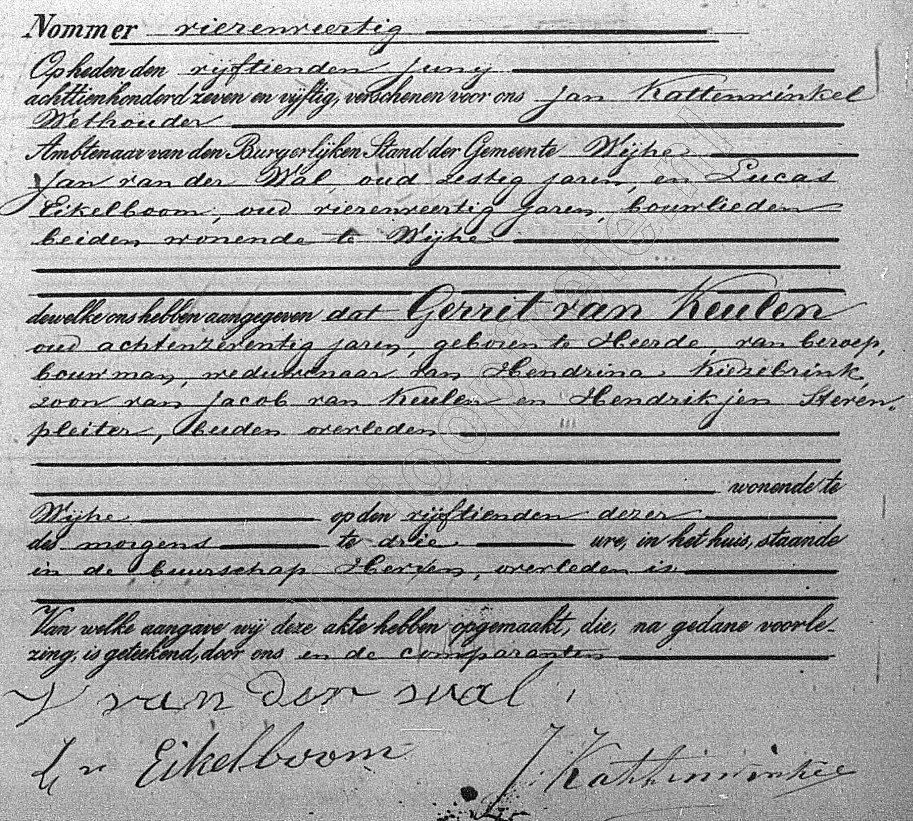 Nommer vierenveertig
Op heden den vijftienden Juny
achttienhonderd zeven en vijftig, verschenen voor ons Jan Kattenwinkel
Wethouder
Ambtenaar van den Burgerlijken Stand der Gemeente Wijhe
Jan van der Wal, oud zestig jaren, en Lucas
Eikelboom, oud vierenveertig jaren, bouwlieden
beiden wonende te Wijhe
dewelke ons hebben aangegeven dat Gerrit van Keulen
oud achtenzeventig jaren, geboren te Heerde, van beroep,
bouwman, weduwenaar van Hendrina Kiezebrink,
zoon van Jacob van Keulen en Hendrikjen Steven„
pleiter, beiden overleden
wonende te
Wijhe op den vijftienden dezer
des morgens te drie ure, in het huis, staande
in de buurschap Herxen, overleden is
Van welke aangave wij deze akte hebben opgemaakt, die, na gedane voorle-
zing, is geteekend, door ons en de comparanten
J van der wal
Eikelboom
J. Kattenwinkel